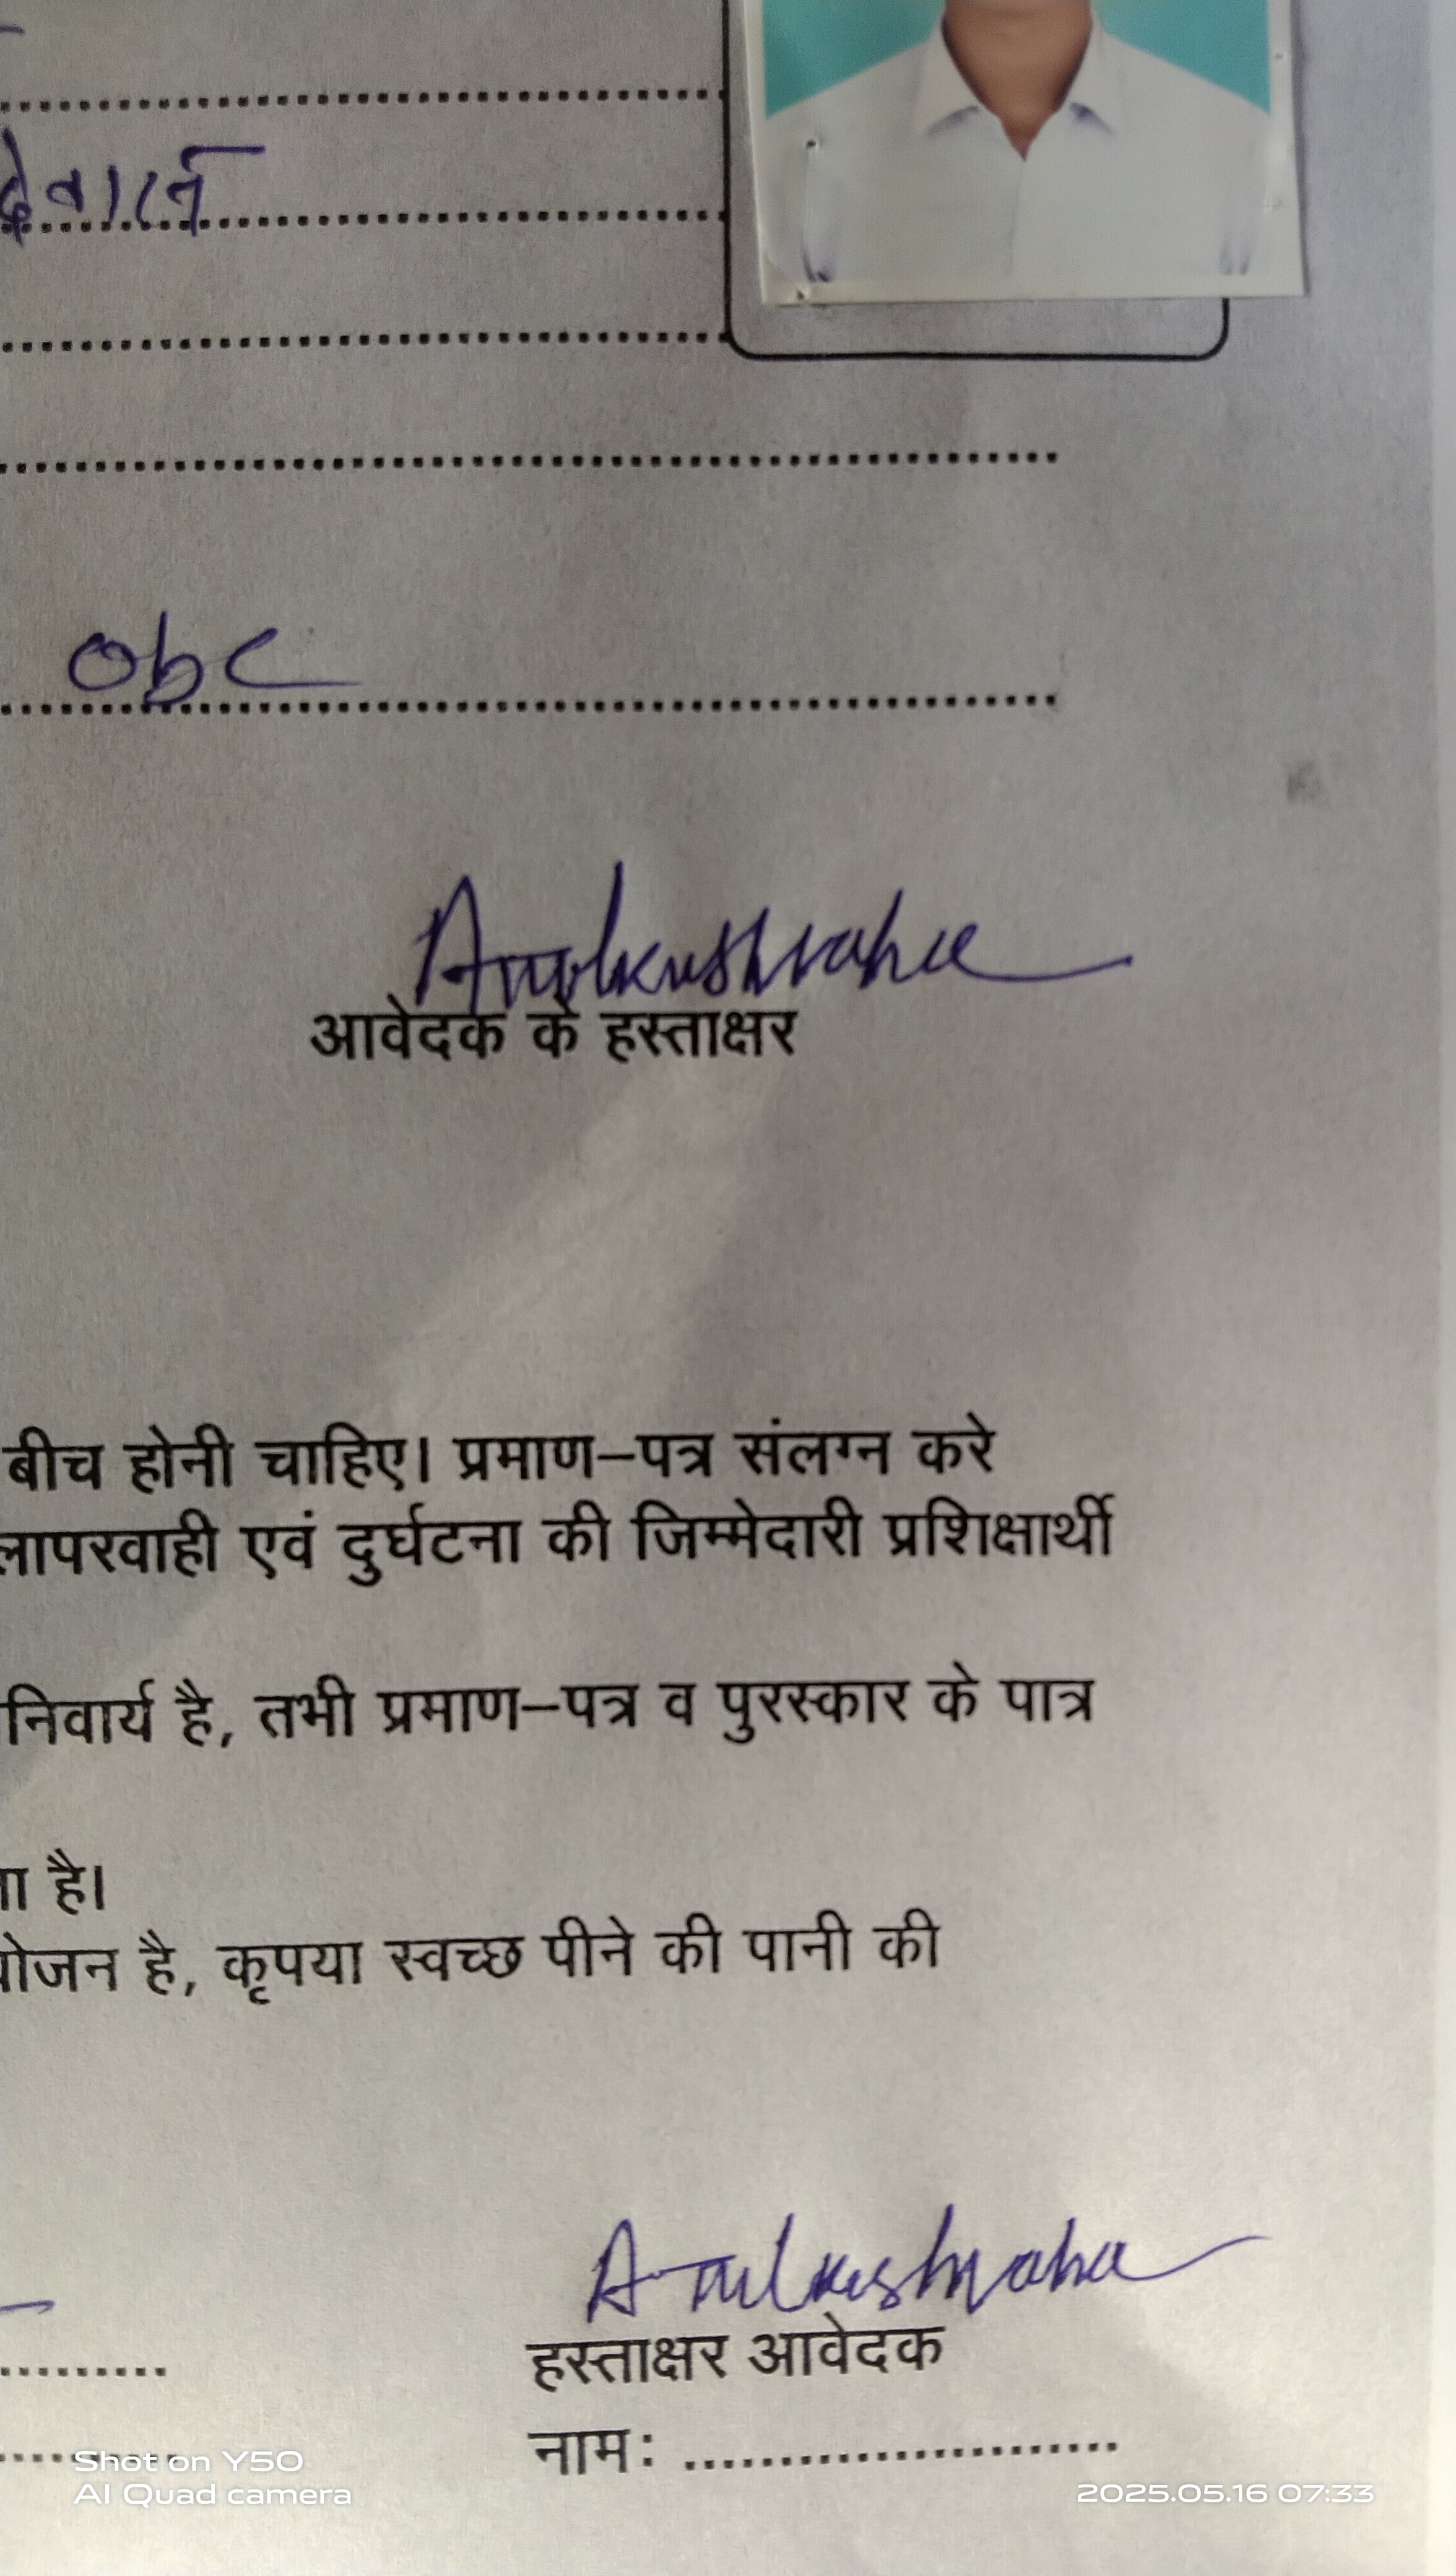 obc
आवेदक के हस्ताक्षर
बीच होनी चाहिए। प्रमाण–पत्र संलग्न करे
लापरवाही एवं दुर्घटना की जिम्मेदारी प्रशिक्षार्थी
निवार्य है, तभी प्रमाण–पत्र व पुरस्कार के पात्र
है।
योजन है, कृपया स्वच्छ पीने की पानी की
हस्ताक्षर आवेदक
नाम: ........................
Shot on Y50
AI Quad camera
2025.05.16 07:33